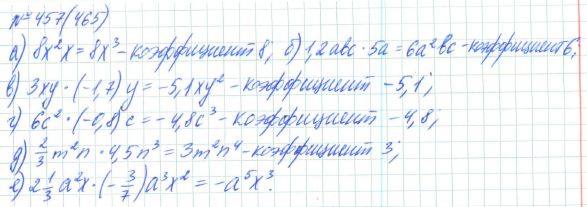 № 457(465)
а) 8x²x = 8x³ - коэффициент 8; б) 1,2abc · 5a = 6a²bc - коэффициент 6;
в) 3xy · (-1,7)y = -5,1xy² - коэффициент -5,1;
г) 6c² · (-0,8)c = -4,8c³ - коэффициент -4,8;
д) 2/3 m²n · 4,5n³ = 3m²n⁴ - коэффициент 3;
е) 2 1/3 a²x · (-3/7)a³x² = -a⁵x³.